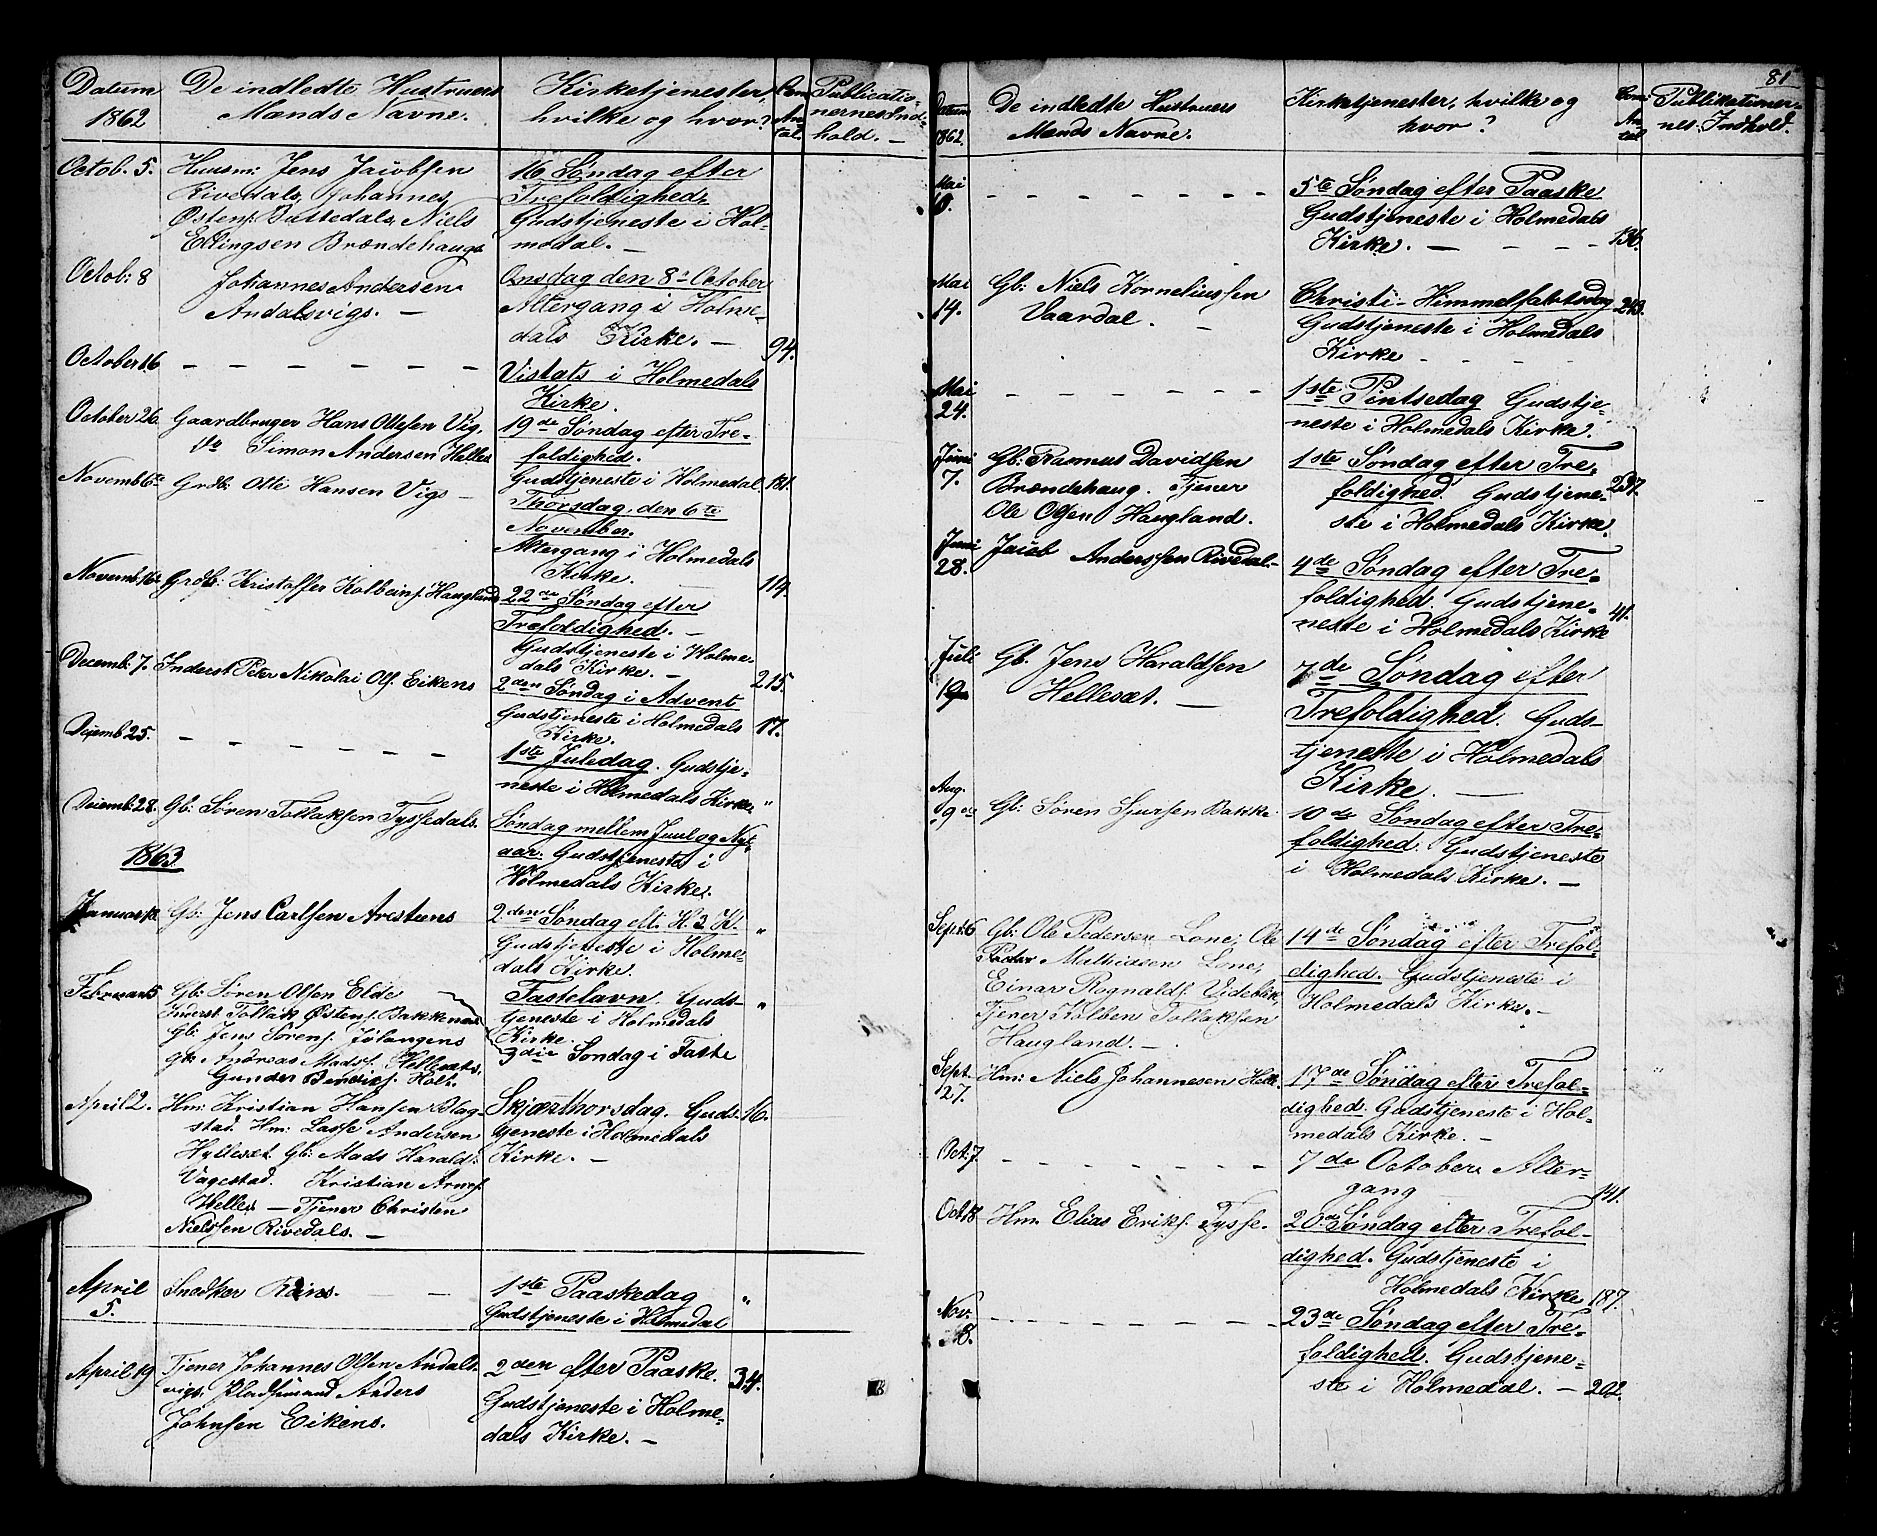 Datum
1862
De indledte Hustruers
Mænds Navne.
Kirketjenester,
hvilke og hvor?
Com
An
tal.
Publicatio-
nernes Ind-
hold. —
Octob. 5.
Huusm: Jens Jacobsen
Rivedals, Johannes
Østens. Battedals, Niels
Ellingsen Brændehaugs
16 Søndag efter
Trefoldighed.
Gudstjeneste i Hol-
medal. —
Octob: 8
Johannes Andersen
Andalsvigs. —
Onsdag den 8de October
Altergang i Holme-
dals Kirke. —
94.
October 16
— — — — — —
Vistats i Holmedals
Kirke.
October 26.
Gaardbruger Hans Ottesen Vig.
do Simon Andersen Helles
19de Søndag efter Tre-
foldighed.
Gudstjeneste i Holmedal.
181.
Novemb 6te
Grdb: Otte Hansen Vigs —
Thorsdag, den 6te
November.
Altergang i Holmedals
Kirke.
114.
Novemb. 16de
Grdb: Kristoffer Kolbeins. Haugland
22de Søndag efter
Trefoldighed. —
Gudstjeneste i Holme-
dals Kirke. —
215.
Decemb: 7.
Inderst Peter Nikolai Ols. Eikens
2den Søndag i Advent
Gudstjeneste i Holmedals
Kirke.
17.
Decemb 25.
— — — — — —
1ste Juledag. Gudstje-
neste i Holmedals Kirke
"
Decemb: 28.
Gb: Søren Tollaksen Tyssedals.
Søndag mellem Juul og Nyt-
aar. Gudstjeneste i
Holmedals Kirke.
1863
Januar
Gb: Jens Carlsen Arestens
2den Søndag eft. H. 3 K.
Gudstjeneste i Holme-
dals Kirke.
"
Februar 15
Gb: Søren Olsen Elde
Inderst Tollak Østens. Bakkenæs
Gb: Jens Sørens. Jolangens
Gb Andreas Mads. Hellesets.
Gunder Bendix. Holt.
Fastelavn. Guds-
tjeneste i Holmedals
Kirke.
3die Søndag i Faste
"
April 2.
Hm: Kristian Hansen Blag
stad. Hm: Lasse Andersen
Hyllesæt Gb: Mads Harald.
Vagestad. Kristian Arnes.
Helles — Tjener Christen
Nielssen Rivedals. —
Skjærthorsdag. Guds-
tjeneste i Holmedals
Kirke. —
16.
April
5.
Snedker Reins. — —
1ste Paaskedag
Gudstjeneste i Holmedal
"
April 19
Tjener Johannes Olsen Andals-
vigs. Pladsmand Anders
Johnsen Eikens.
2den efter Paaske.
Gudstjeneste i Holme-
dals Kirke. —
34.
81
Datum
1862.
De indledte Hustruers
Mænds Navne.
Kirketjenester, hvilke og
hvor?
Com
An
tal
Publikationer-
nes Indhold.
Mai
10.
— — — — — —
5te Søndag efter Paaske
Gudstjeneste i Holmedals
Kirke. — — — —
136.
Mai
14.
Gb: Niels Korneliussen
Vaardal. —
Christi-Himmelfahrtsdag
Gudstjeneste i Holmedals
Kirke — — —
243.
Mai
24.
— — — — — —
1ste Pintsedag Gudstje-
neste i Holmedals Kirke.
Juni
7.
Gb: Rasmus Davidsen
Brændehaug. Tjener
Ole Olsen Haugland.
1ste Søndag efter Tre-
foldighed. Gudstjene-
ste i Holmedals Kirke.
237.
Juni
28.
Jacob Anderssen Rivedal.—
4de Søndag efter Tre-
foldighed. Gudstjene-
neste i Holmedals Kirke
41.
Juli
19
Gb. Jens Haraldsen
Hellesæt. —
7de Søndag efter
Trefoldighed. Guds-
tjeneste i Holmedals
Kirke. —
Aug.
9de
Gb: Søren Sjursen Bakke
10de Søndag efter Tre-
foldighed. Gudstjeneste
i Holmedals Kirke. —
Sept: 6
Gb: Ole Pedersen Lone; Ole
Peder Mathiesen Lone;
Einar Rognalds. Videbæk
Tjener Kolben Tollaksen
Haugland. —
14de Søndag efter Trefol-
dighed. Gudstjeneste i
Holmedals Kirke. —
Sept.
27.
Hm: Niels Johannesen Helle.
17de Søndag efter Trefol-
dighed. Gudstjeneste i Hol-
medals Kirke. —
Oct. 7.
— — — — — —
7de October Alter-
gang
141.
Oct. 18
Hm. Elias Eriks. Tysse.
20de Søndag efter Trefol-
dighed. Gudstjeneste i
Holmedals Kirke
187.
Nov.
8.
— — — — — —
23de Søndag efter Tre-
foldighed. Gudstjene-
ste i Holmedal. —
202.